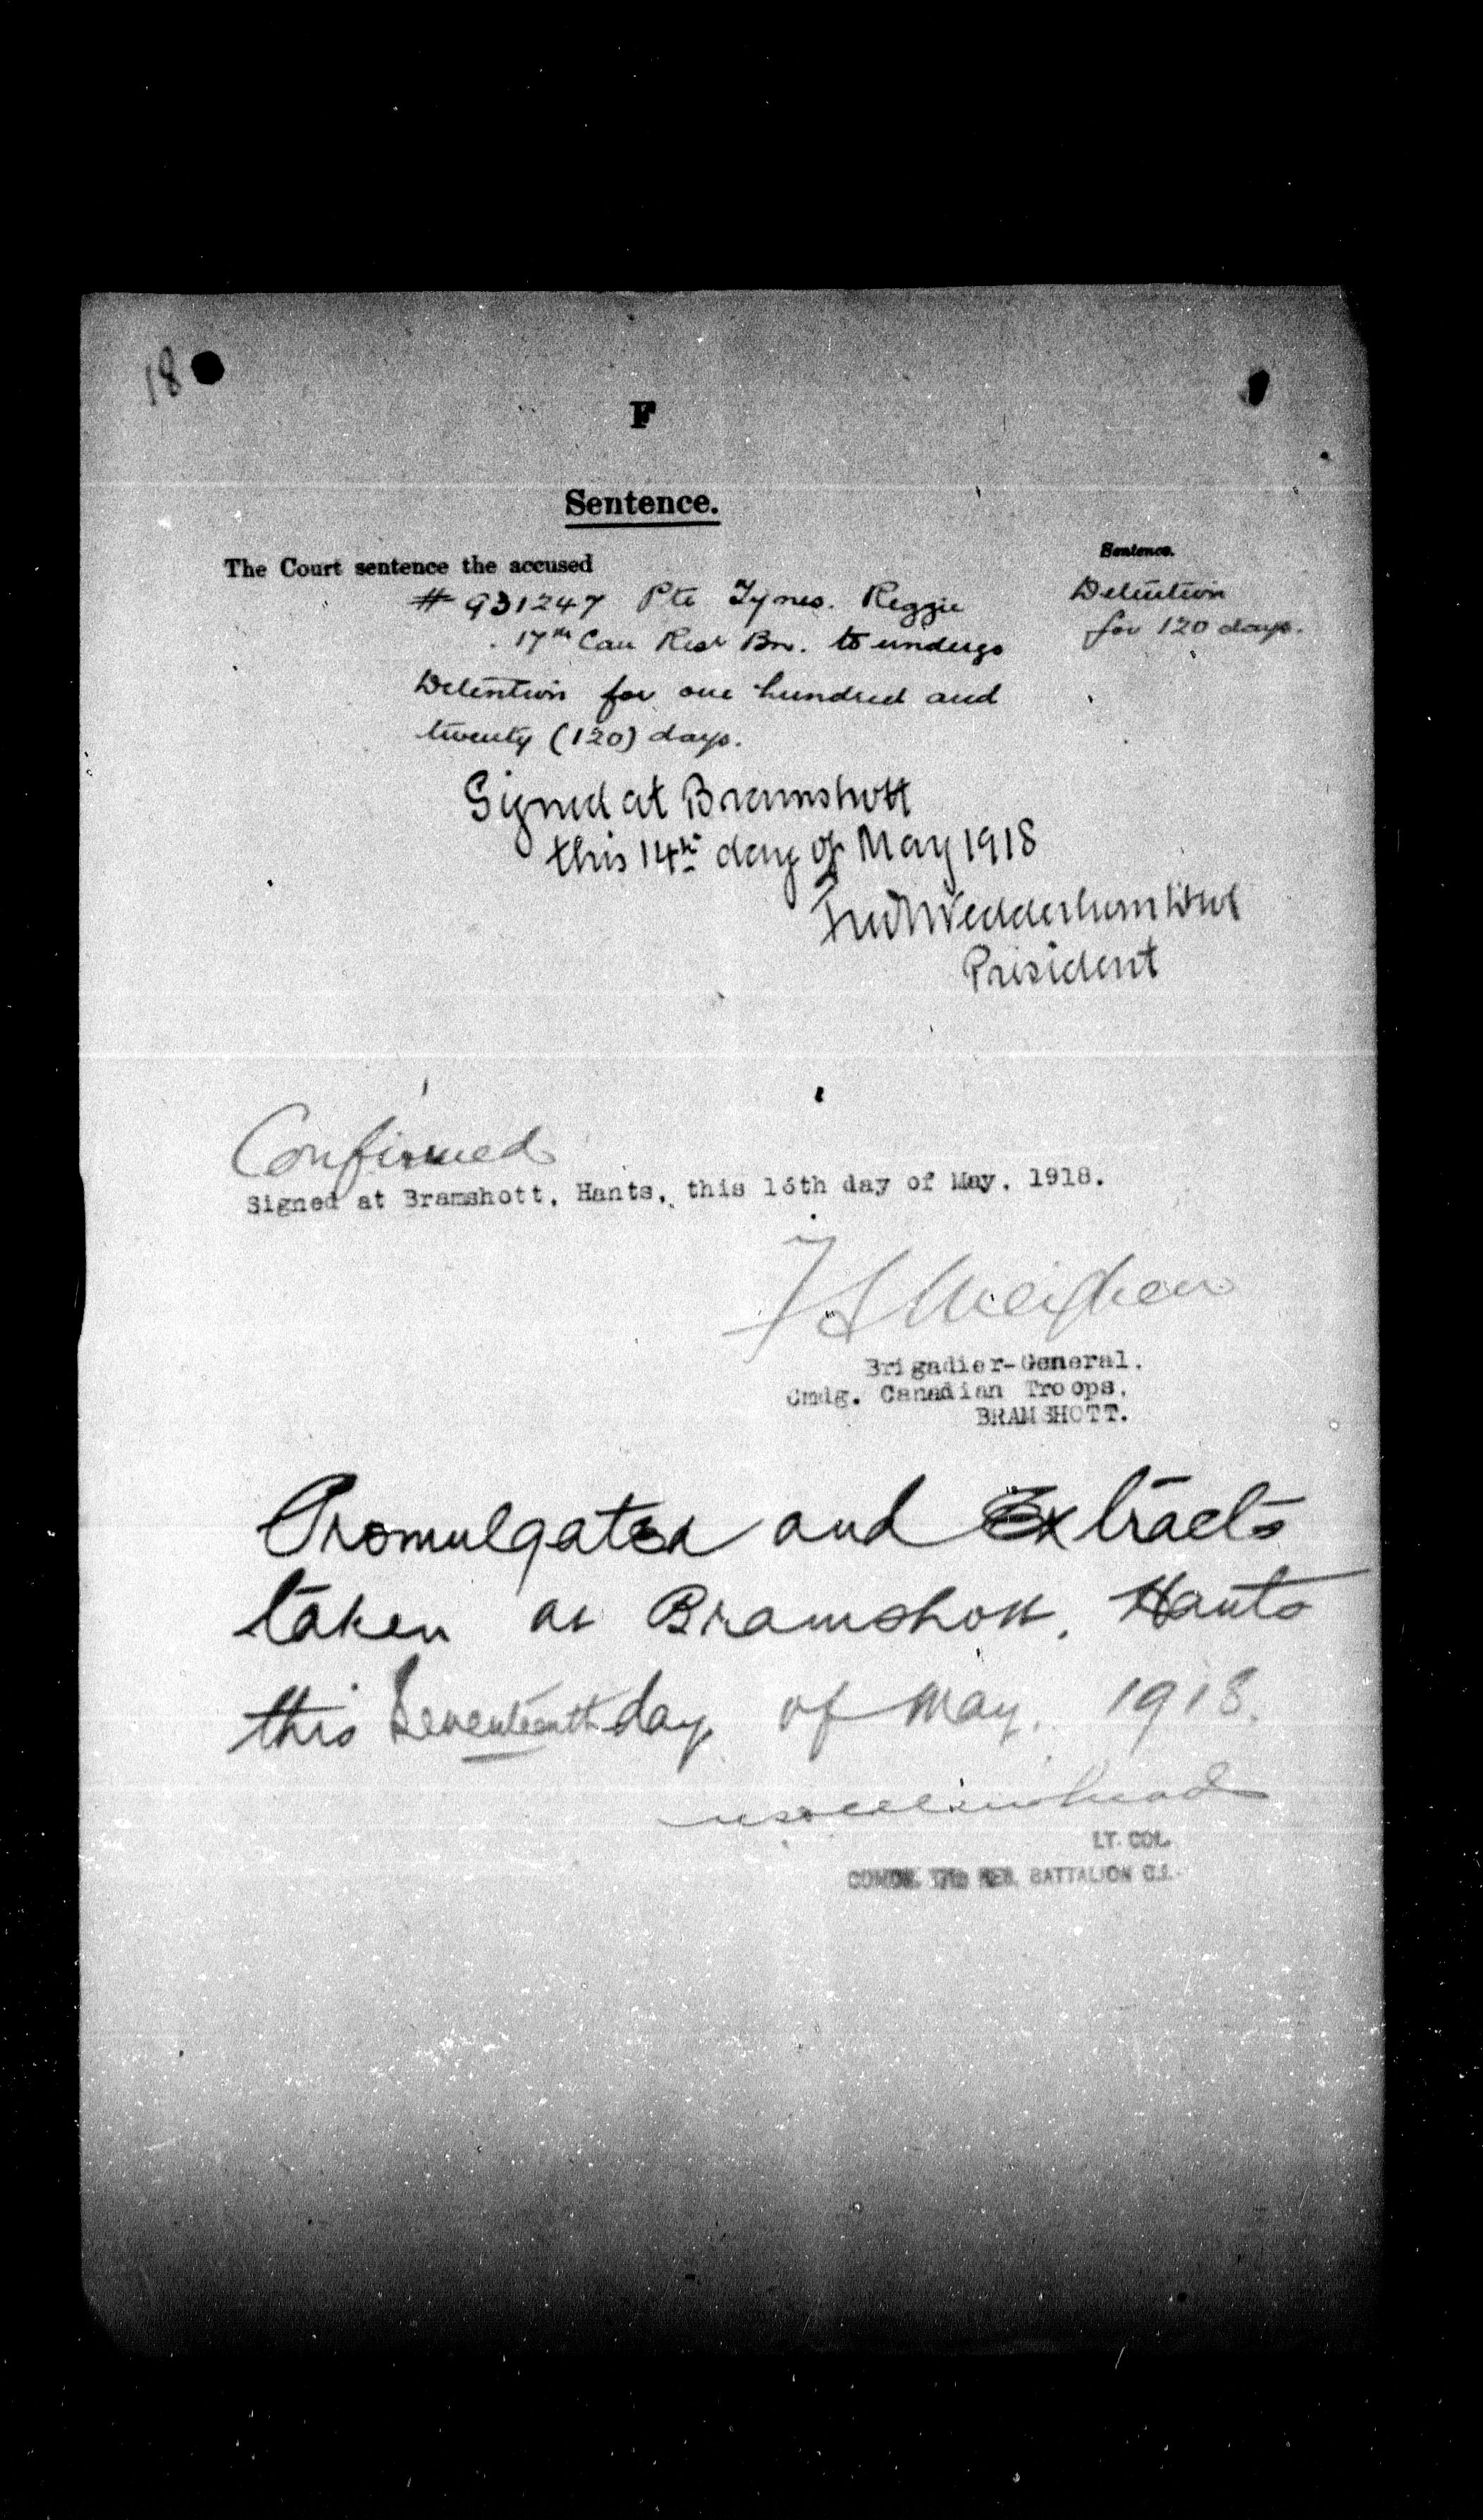 18
F
Sentence.
The Court sentence the accused
Sentence.
# 931247 Pte Tynes. Reggie
17th Can Resr Bn. to undergo
Detention for one hundred and
twenty (120) days.
Detention
for 120 days.
Signed at Bramshott
this 14th day of May 1918
Fred Wedderburn
President
Confirmed
Signed at Bramshott, Hants, this 16th day of May, 1918.
F S Meighen
Brigadier-General.
Cmdg. Canadian Troops,
BRAMSHOTT.
Promulgated and Extracts
taken at Bramshott, Hants
this Seventeenth day of May, 1918.
LT. COL.
BATTALION C.I.